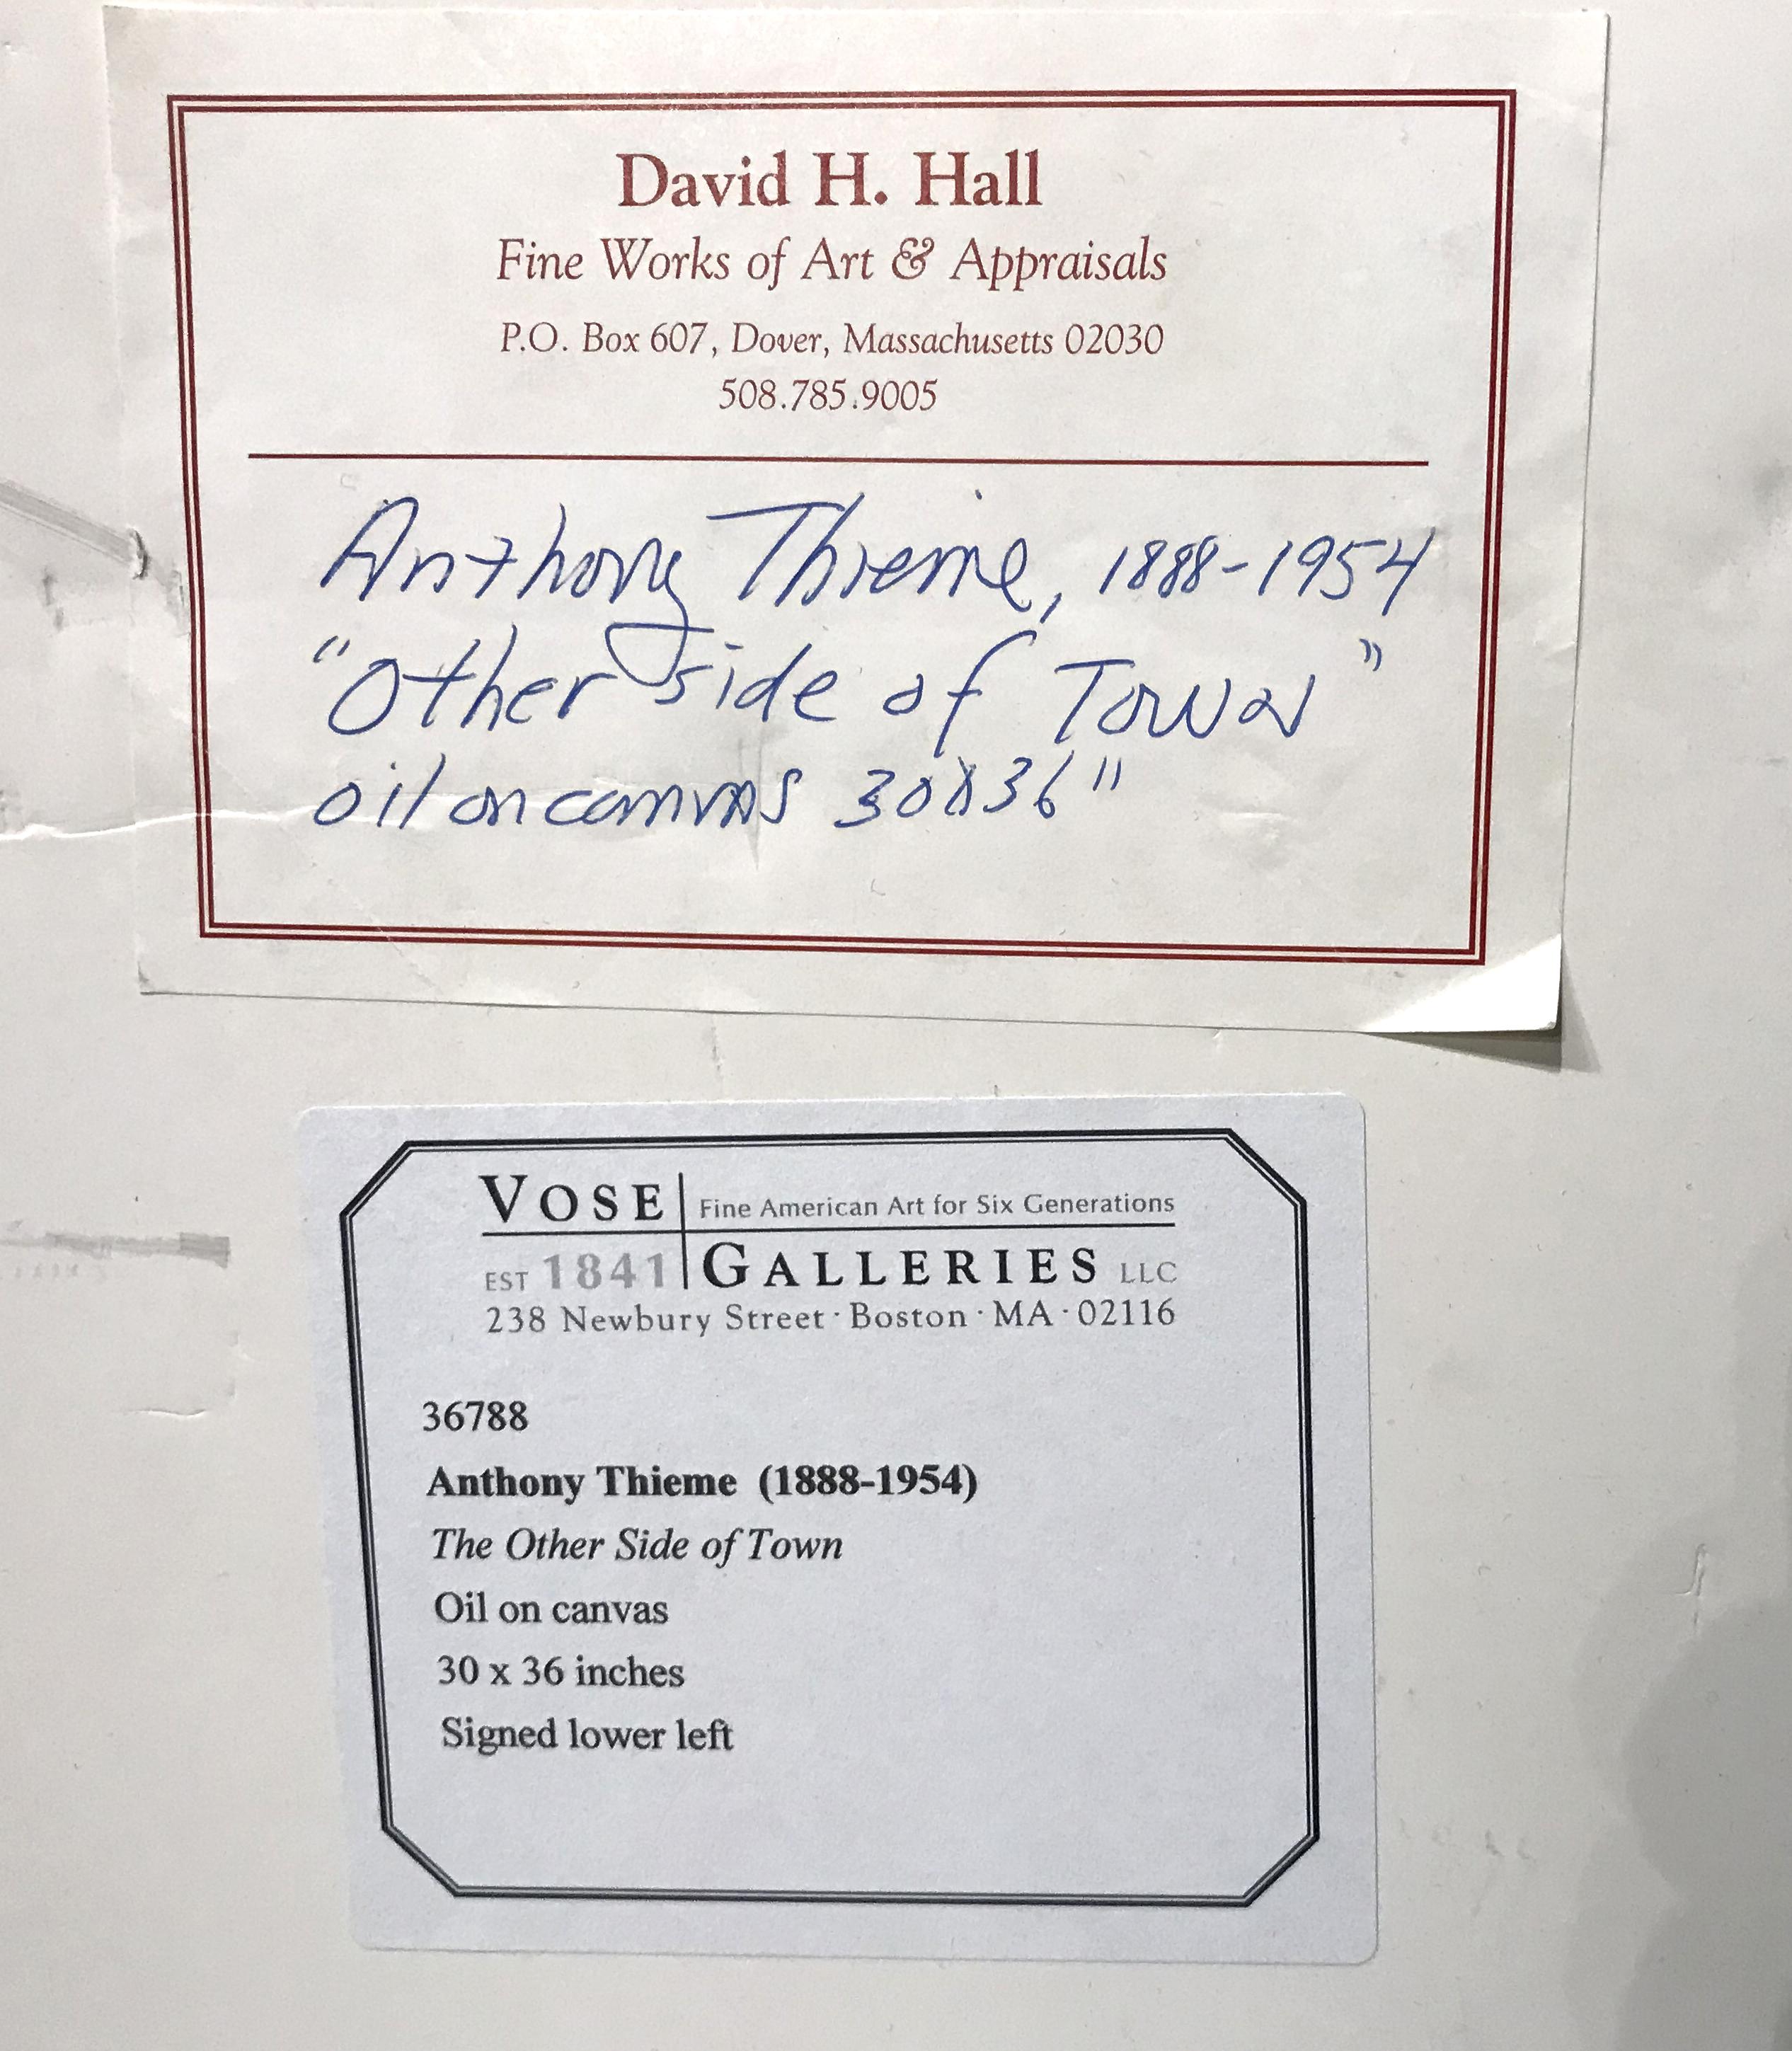 David H. Hall
Fine Works of Art & Appraisals
P.O. Box 607, Dover, Massachusetts 02030
508.785.9005
Anthony Thieme, 1888-1954
"Other side of Town"
oil on canvas 30x36"
VOSE
Fine American Art for Six Generations
EST 1841
GALLERIES LLC
238 Newbury Street · Boston · MA · 02116
36788
Anthony Thieme (1888-1954)
The Other Side of Town
Oil on canvas
30 x 36 inches
Signed lower left